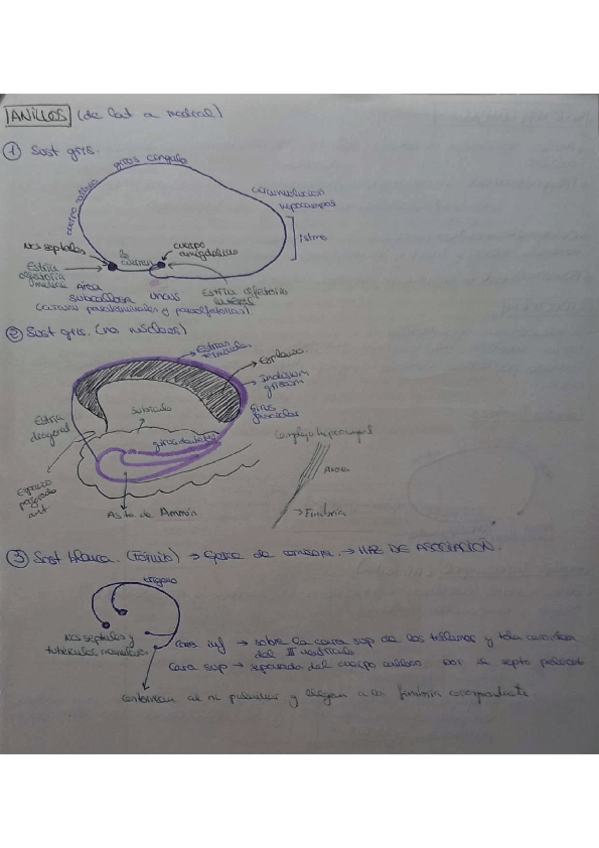 ANILLOS (de lat a medial)
① Sust gris.
giros cíngulo
cuerpo calloso
circunvolución
hipocampo
Istmo
Nos septales
cuerpo
amigdalino
Estría
olfatoria
medial
Área
subcallosa
uncus
Estría olfatoria
lateral
② Sust gris. (no núcleos)
Estrías
Esplenio.
Indusium
griseum
Giros
fasciolar
Estría
diagonal
Subículo
giros dentado
Complejo hipocampal
Espacio
perforado
ant
Asta de Ammón
Álveo
Fimbria
③ Sust blanca. (Fórnix) → de → HAZ DE ASOCIACIÓN.
trígono
Nos septales y
tubérculos mamilares
Cara inf → sobre la cara sup de los tálamos y tela coroidea
del III ventrículo
Cara sup → separada del cuerpo calloso por el septo
al n. pulvinar y llegan a la fimbria correspondiente